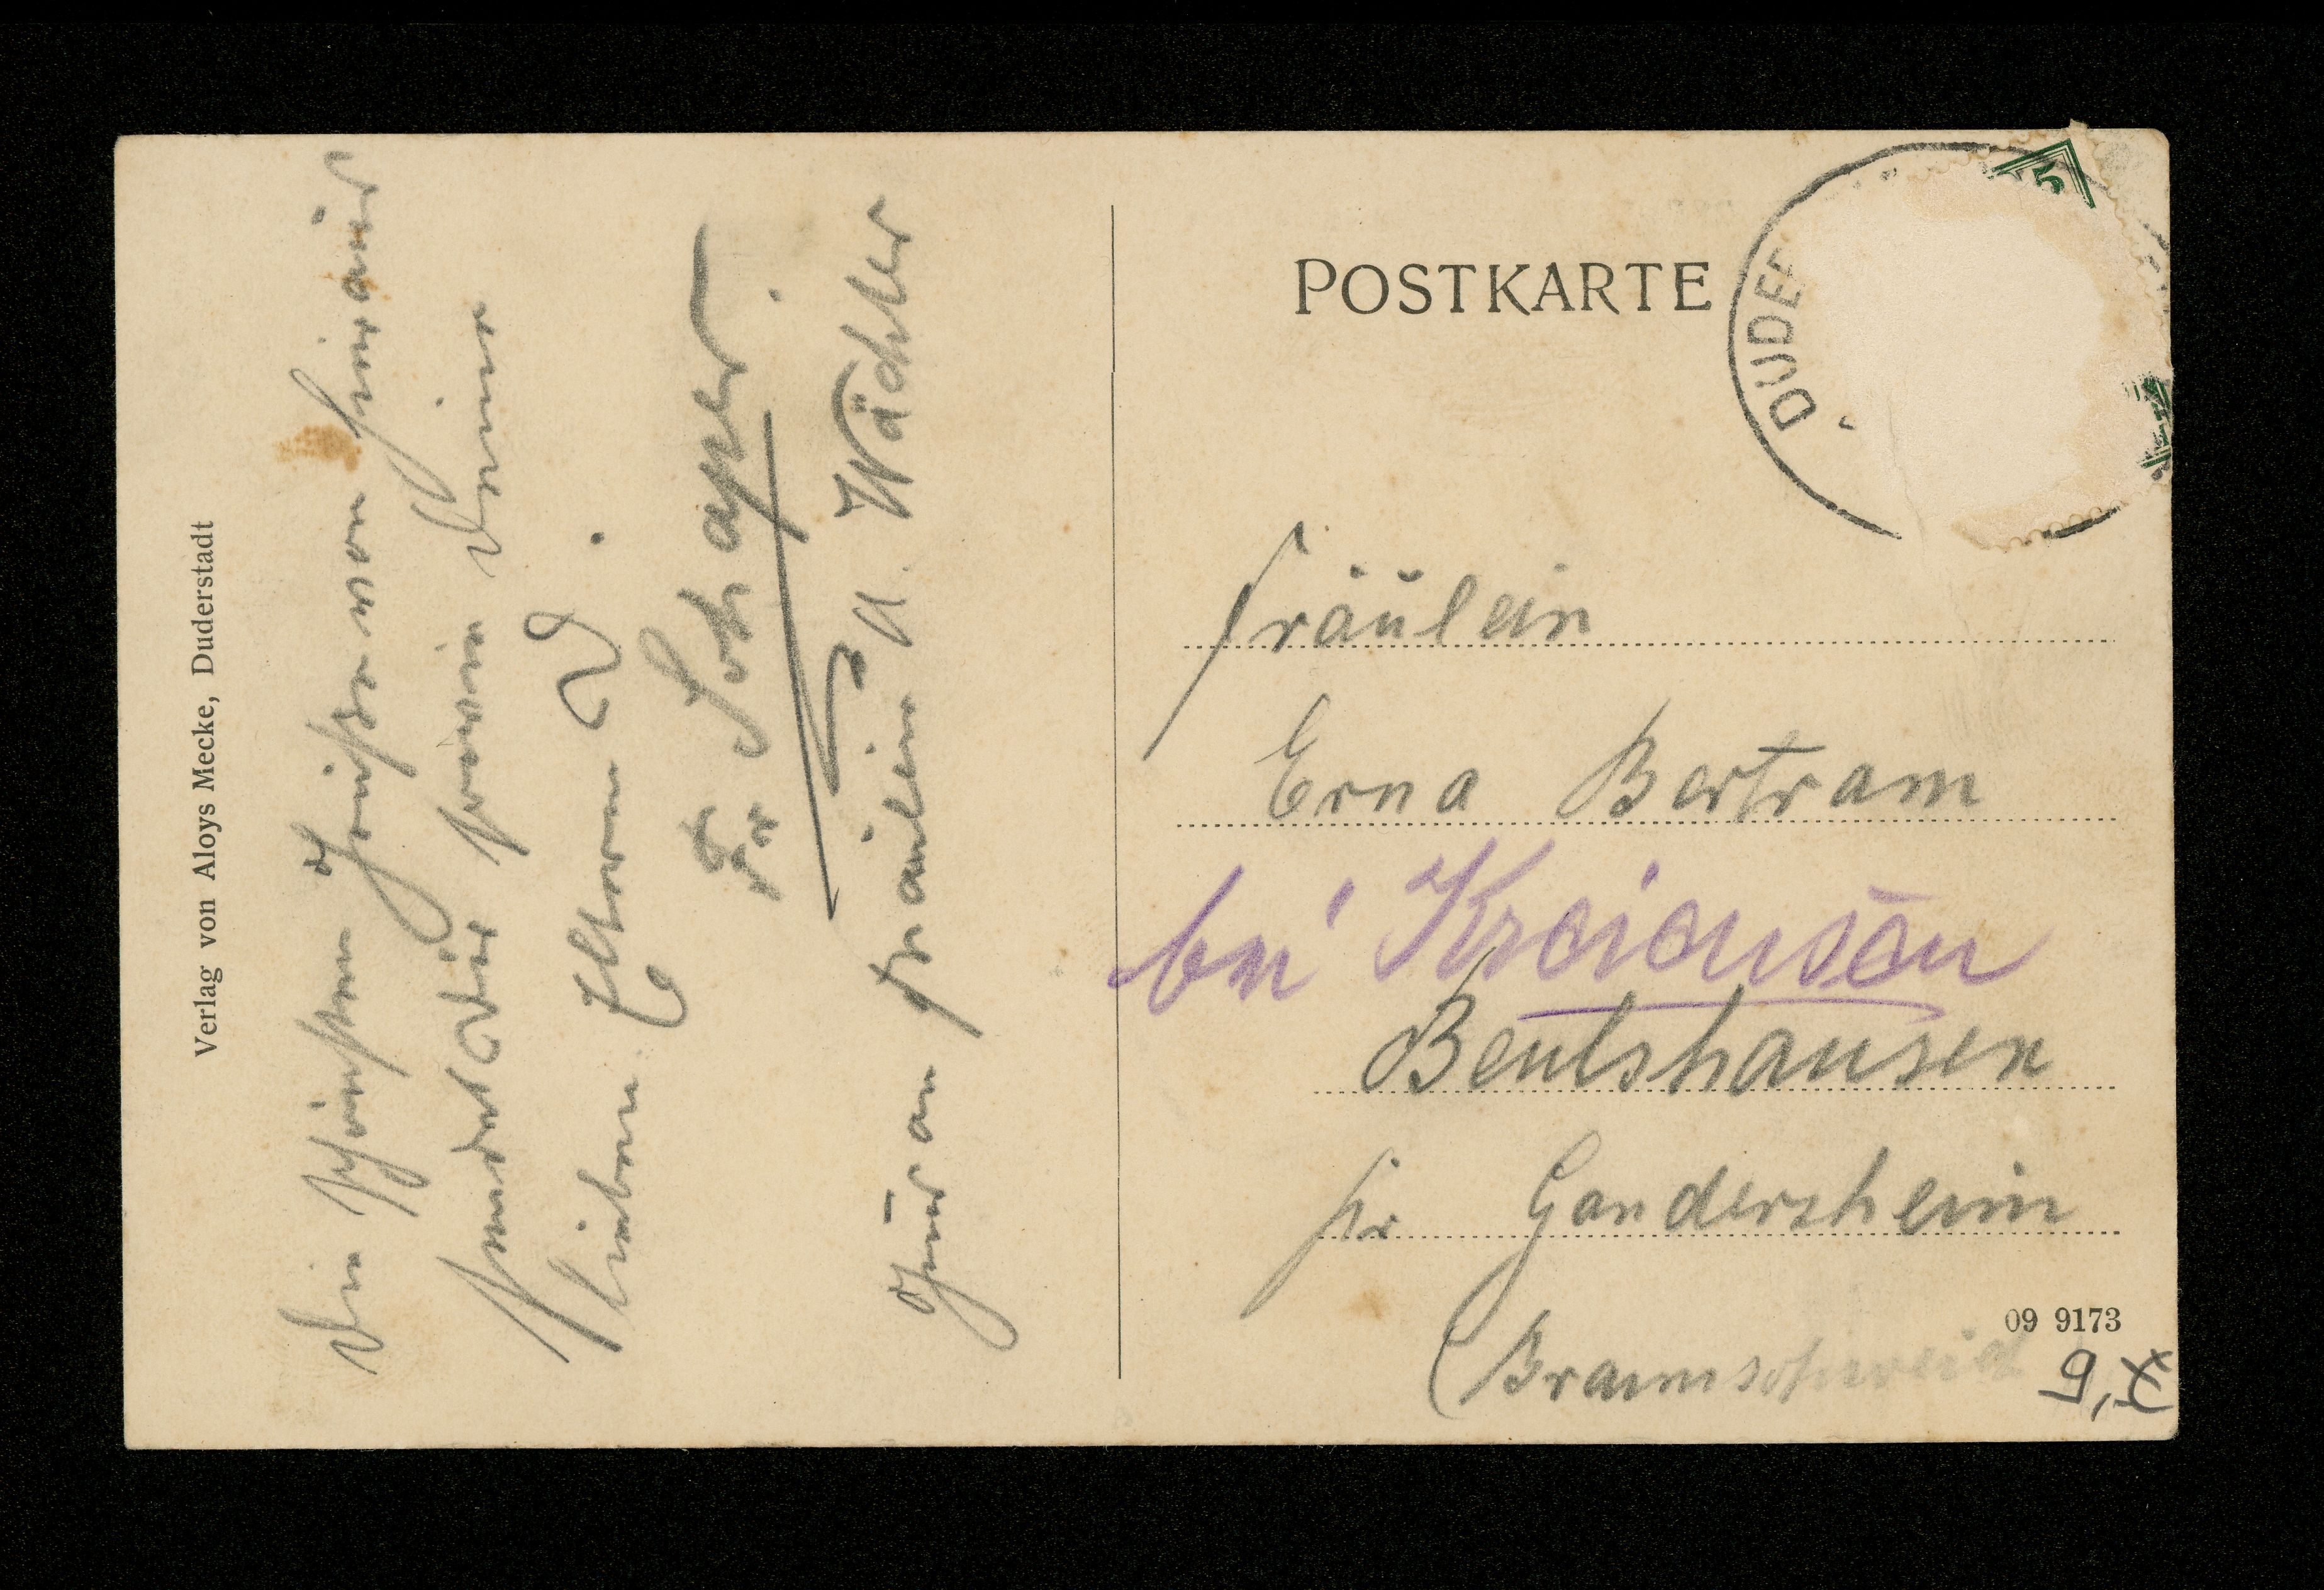 Verlag von Aloys Mecke, Duderstadt
Die schönsten Grüße von hieraus
sendet Dir sowie Deinen
lieben Eltern
Gruß an Fräulein A. Wächter
POSTKARTE
DUDER
5
Fräulein
Erna Bertram
bei Kreiensen
Beulshausen
pr Gandersheim
(Braunschweig
09 9173